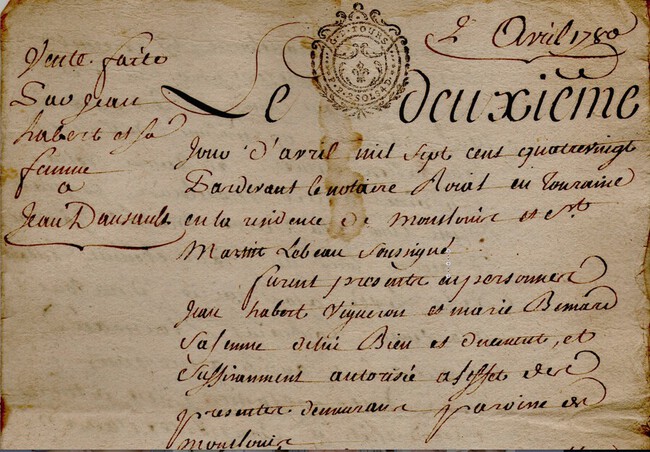 2 Avril 1780
Vente faite
Par Jean
habert et sa
femme
a
Jean Dansault
G. DE TOURS
2 SOLS 4 D
Le deuxième
Jour d'avril mil sept cent quatrevingt
Pardevant le notaire Roial en Touraine
en la residence de Monslouis et St
Martin Lebeau Soussigné
furent presente en personnes
Jean habert Vigneron et marie Bemard
sa femme de lui Bien et duement, et
Suffisamment autorisée a l'effet des
presentes demeurant paroisse de
monslouis